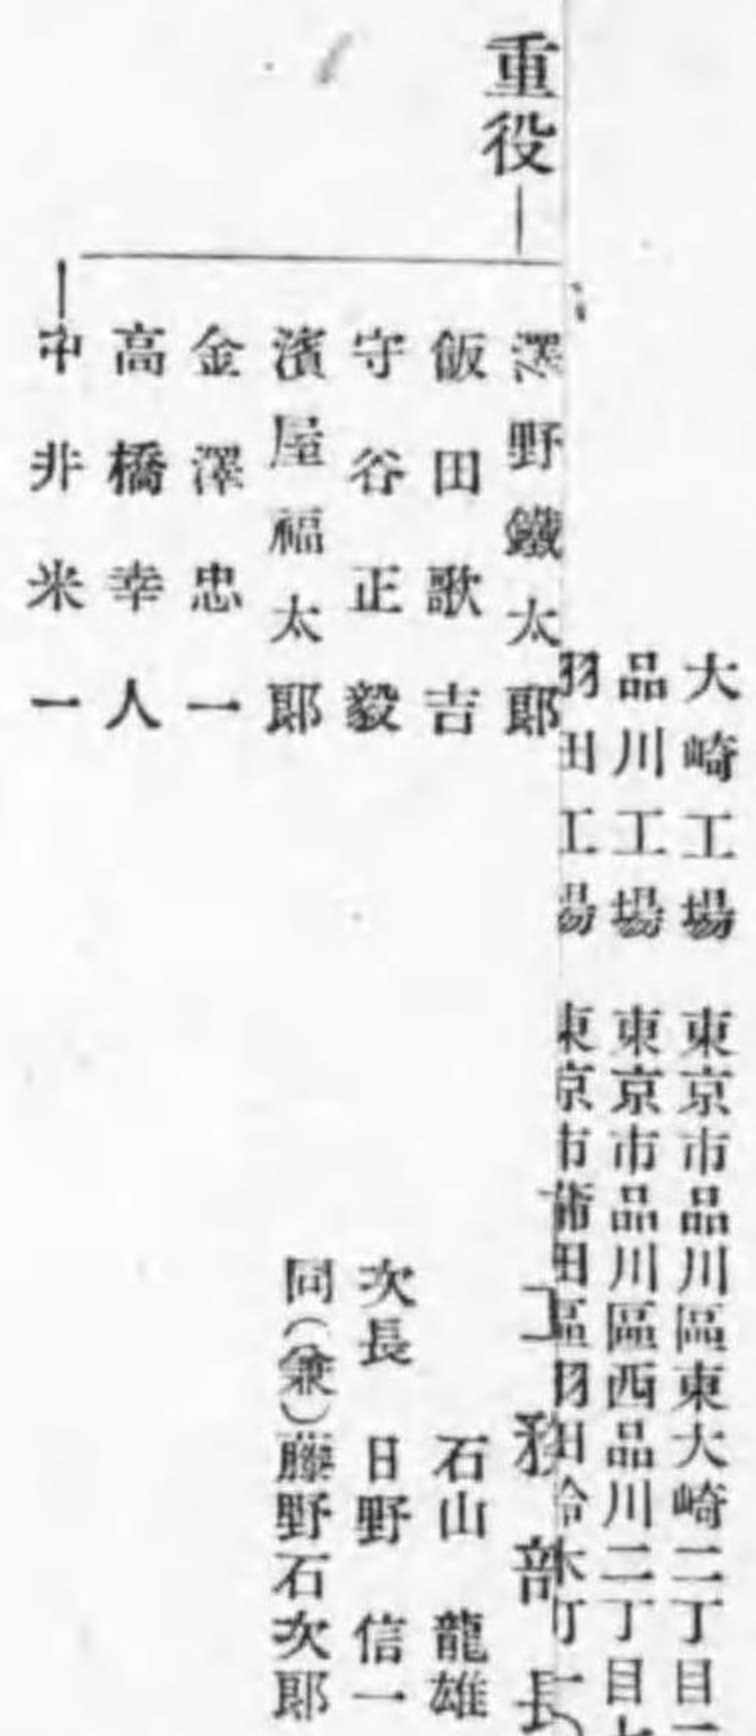 大崎工場 東京市品川區東大崎二丁目
品川工場 東京市品川區西品川二丁目
羽田工場 東京市蒲田區羽田鈴木町一
重役
澤野鐵太郎
飯田歌吉
守谷正毅
濱屋福太郎
金澤忠一
高橋幸人
中井米一
工務部長
石山龍雄
次長 日野信一
同(兼)藤野石次郎